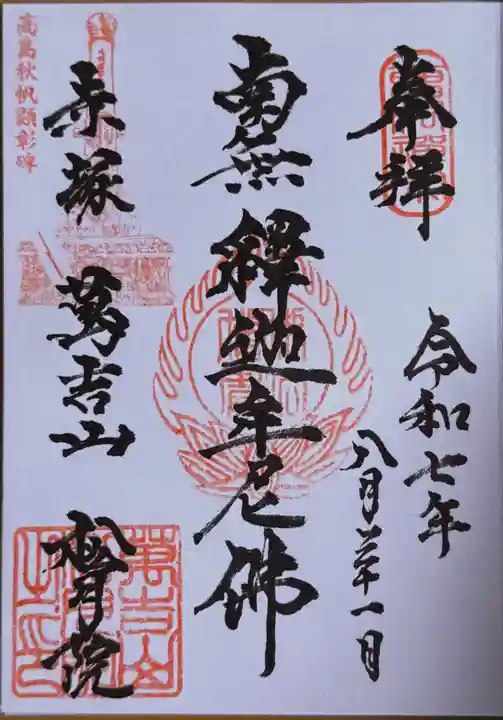 奉拝
令和七年
八月三十一日
南無釋迦牟尼佛
赤塚 萬吉山 松月院
高島秋帆顕彰碑